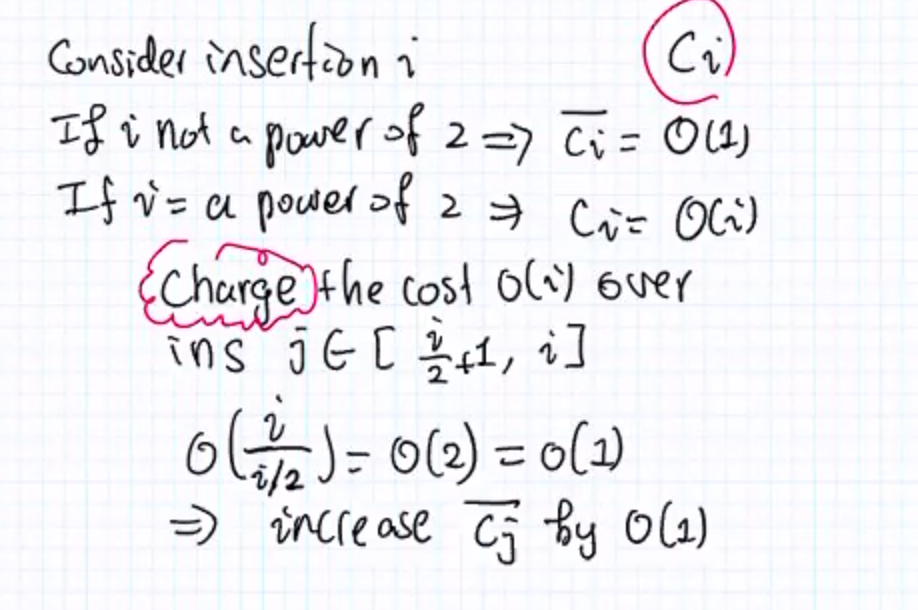 Consider insertion i Ci
If i not a power of 2 ⇒ C̅i = O(1)
If i = a power of 2 ⇒ Ci = O(i)
Charge the cost O(i) over
ins j ∈ [ i/2 +1, i ]
O( i / i/2 ) = O(2) = O(1)
⇒ increase C̅j by O(1)